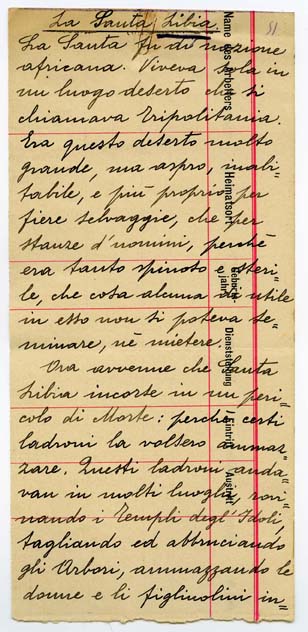 La Santa Libia.
51
La Santa fu di nazione
africana. Viveva sola in
un luogo deserto che si
chiamava Tripolitania.
Era questo deserto molto
grande, ma aspro, inabi=
tabile, e più proprio per
fiere selvaggie, che per
stanze d'uomini, perché
era tanto spinoso e steri=
le, che cosa alcuna di utile
in esso non si poteva se=
minare, nè mietere.
Ora avvenne che Santa
Libia incorse in un peri=
colo di Morte: perchè certi
ladroni la volsero ammaz=
zare. Questi ladroni anda=
van in molti luoghi, rovi=
nando i Templi degl' Idoli,
tagliando ed abbruciando
gli Arbori, ammazzando le
donne e li figliuolini in=
Name des Arbeiters
Heimatsort
Geboren
Jahr
Dienststellung
Eintritt
Austritt